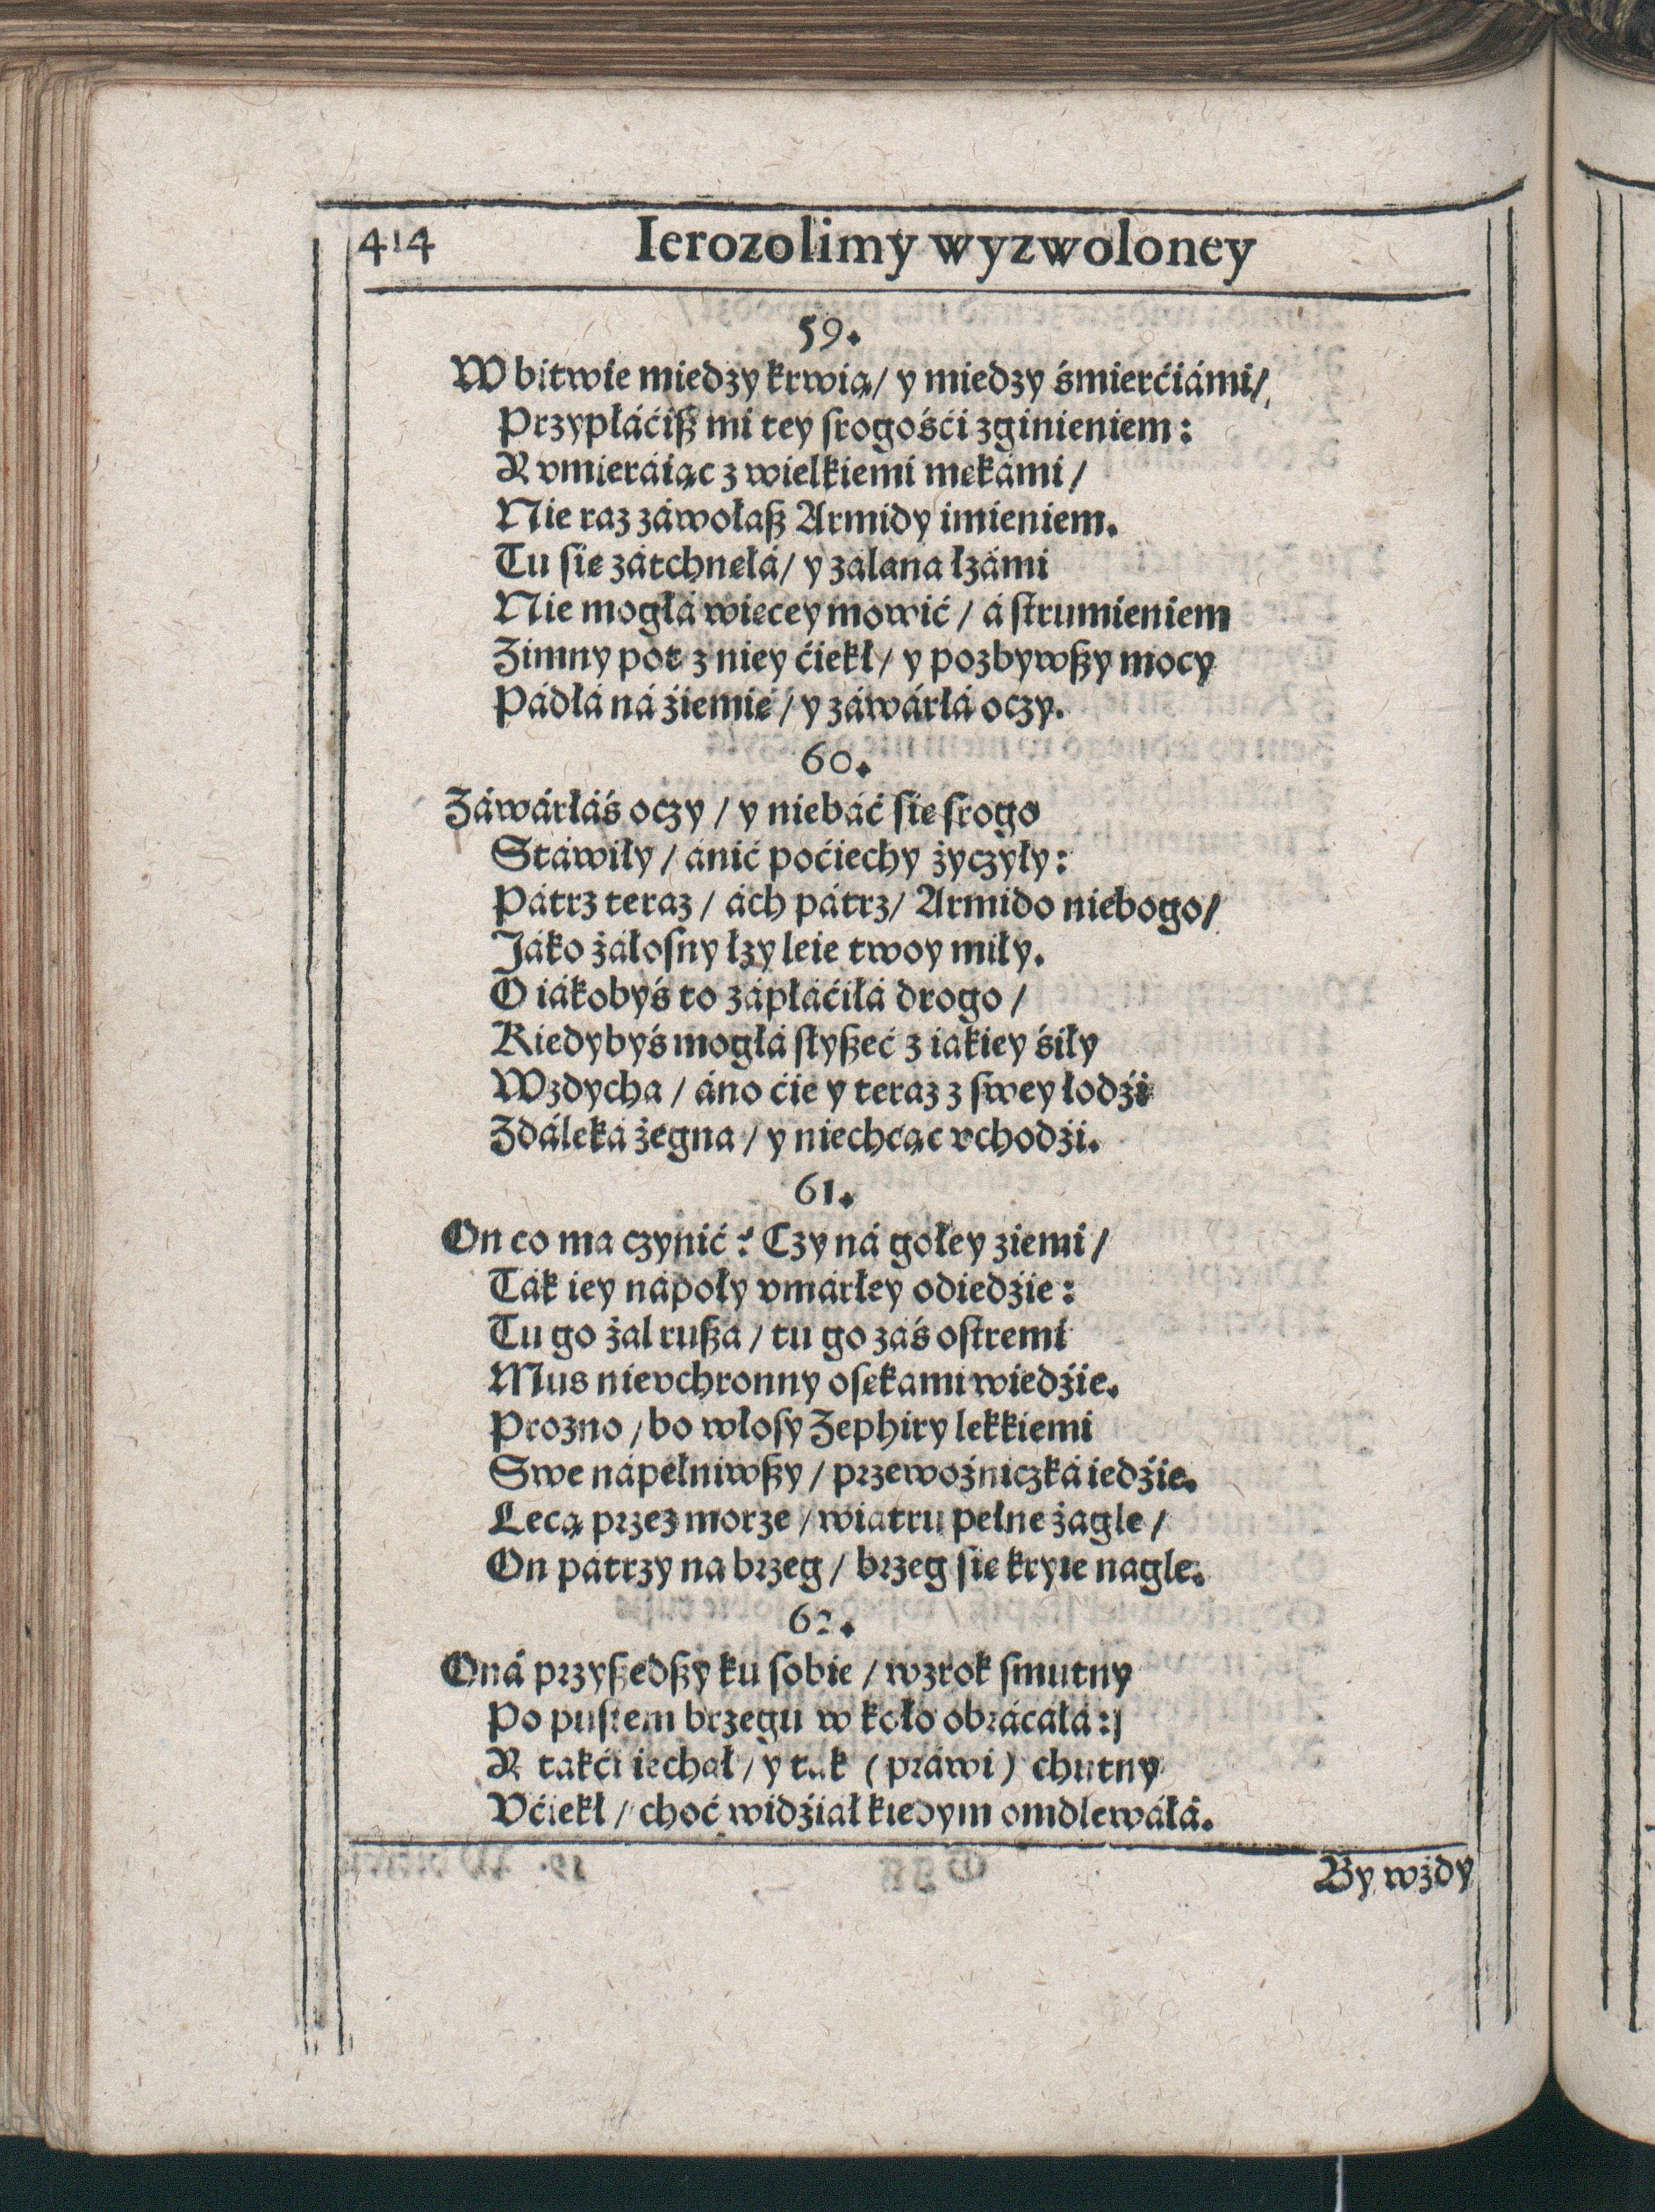 414 Ierozolimy wyzwoloney
59.
W bitwie miedzy krwią/ y miedzy śmierćiámi/
Przypłáćiſz mi tey ſrogośći zginieniem:
A vmieráiąc z wielkiemi mękámi/
Nie raz záwołaſz Armidy imieniem.
Tu ſię zátchnęłá/ y zalana łzámi
Nie mogłá więcey mowić/ á ſtrumieniem
Zimny pot z niey ćiekł/ y pozbywſzy mocy
Pádłá ná źiemię/ y záwárłá oczy.
60.
Záwárłáś oczy/ y niebáć ſię ſrogo
Stáwiły/ ánić poćiechy życzyły:
Pátrz teraz/ ách pátrz/ Armido niebogo/
Jáko żáłoſny łzy leie twoy miły.
O iákobyś to zápłáćiłá drogo/
Kiedybyś mogłá ſłyſzeć z iakiey śiły
Wzdycha/ áno ćię y teraz z ſwey łodźi
Zdáleká żegna/ y niechcąc vchodźi.
61.
On co ma czynić? Czy ná gołey ziemi/
Ták iey nápoły vmárłey odiedźie:
Tu go żal ruſza/ tu go záś oſtremi
Mus nievchronny oſękami wiedźie.
Prozno/ bo włoſy Zephiry lekkiemi
Swe nápełniwſzy/ przewoźniczká iedźie.
Lecą przez morze/ wiatru pełne żagle/
On pátrzy na brzeg/ brzeg ſię kryie nagle.
62.
Oná przyſzedſzy ku ſobie/ wzrok ſmutny
Po puſtem brzegu w koło obrácáłá:
A takći iechał/ y tak (práwi) chutny
Vćiekł/ choć widźiał kiedym omdlewáłá.
By wżdy